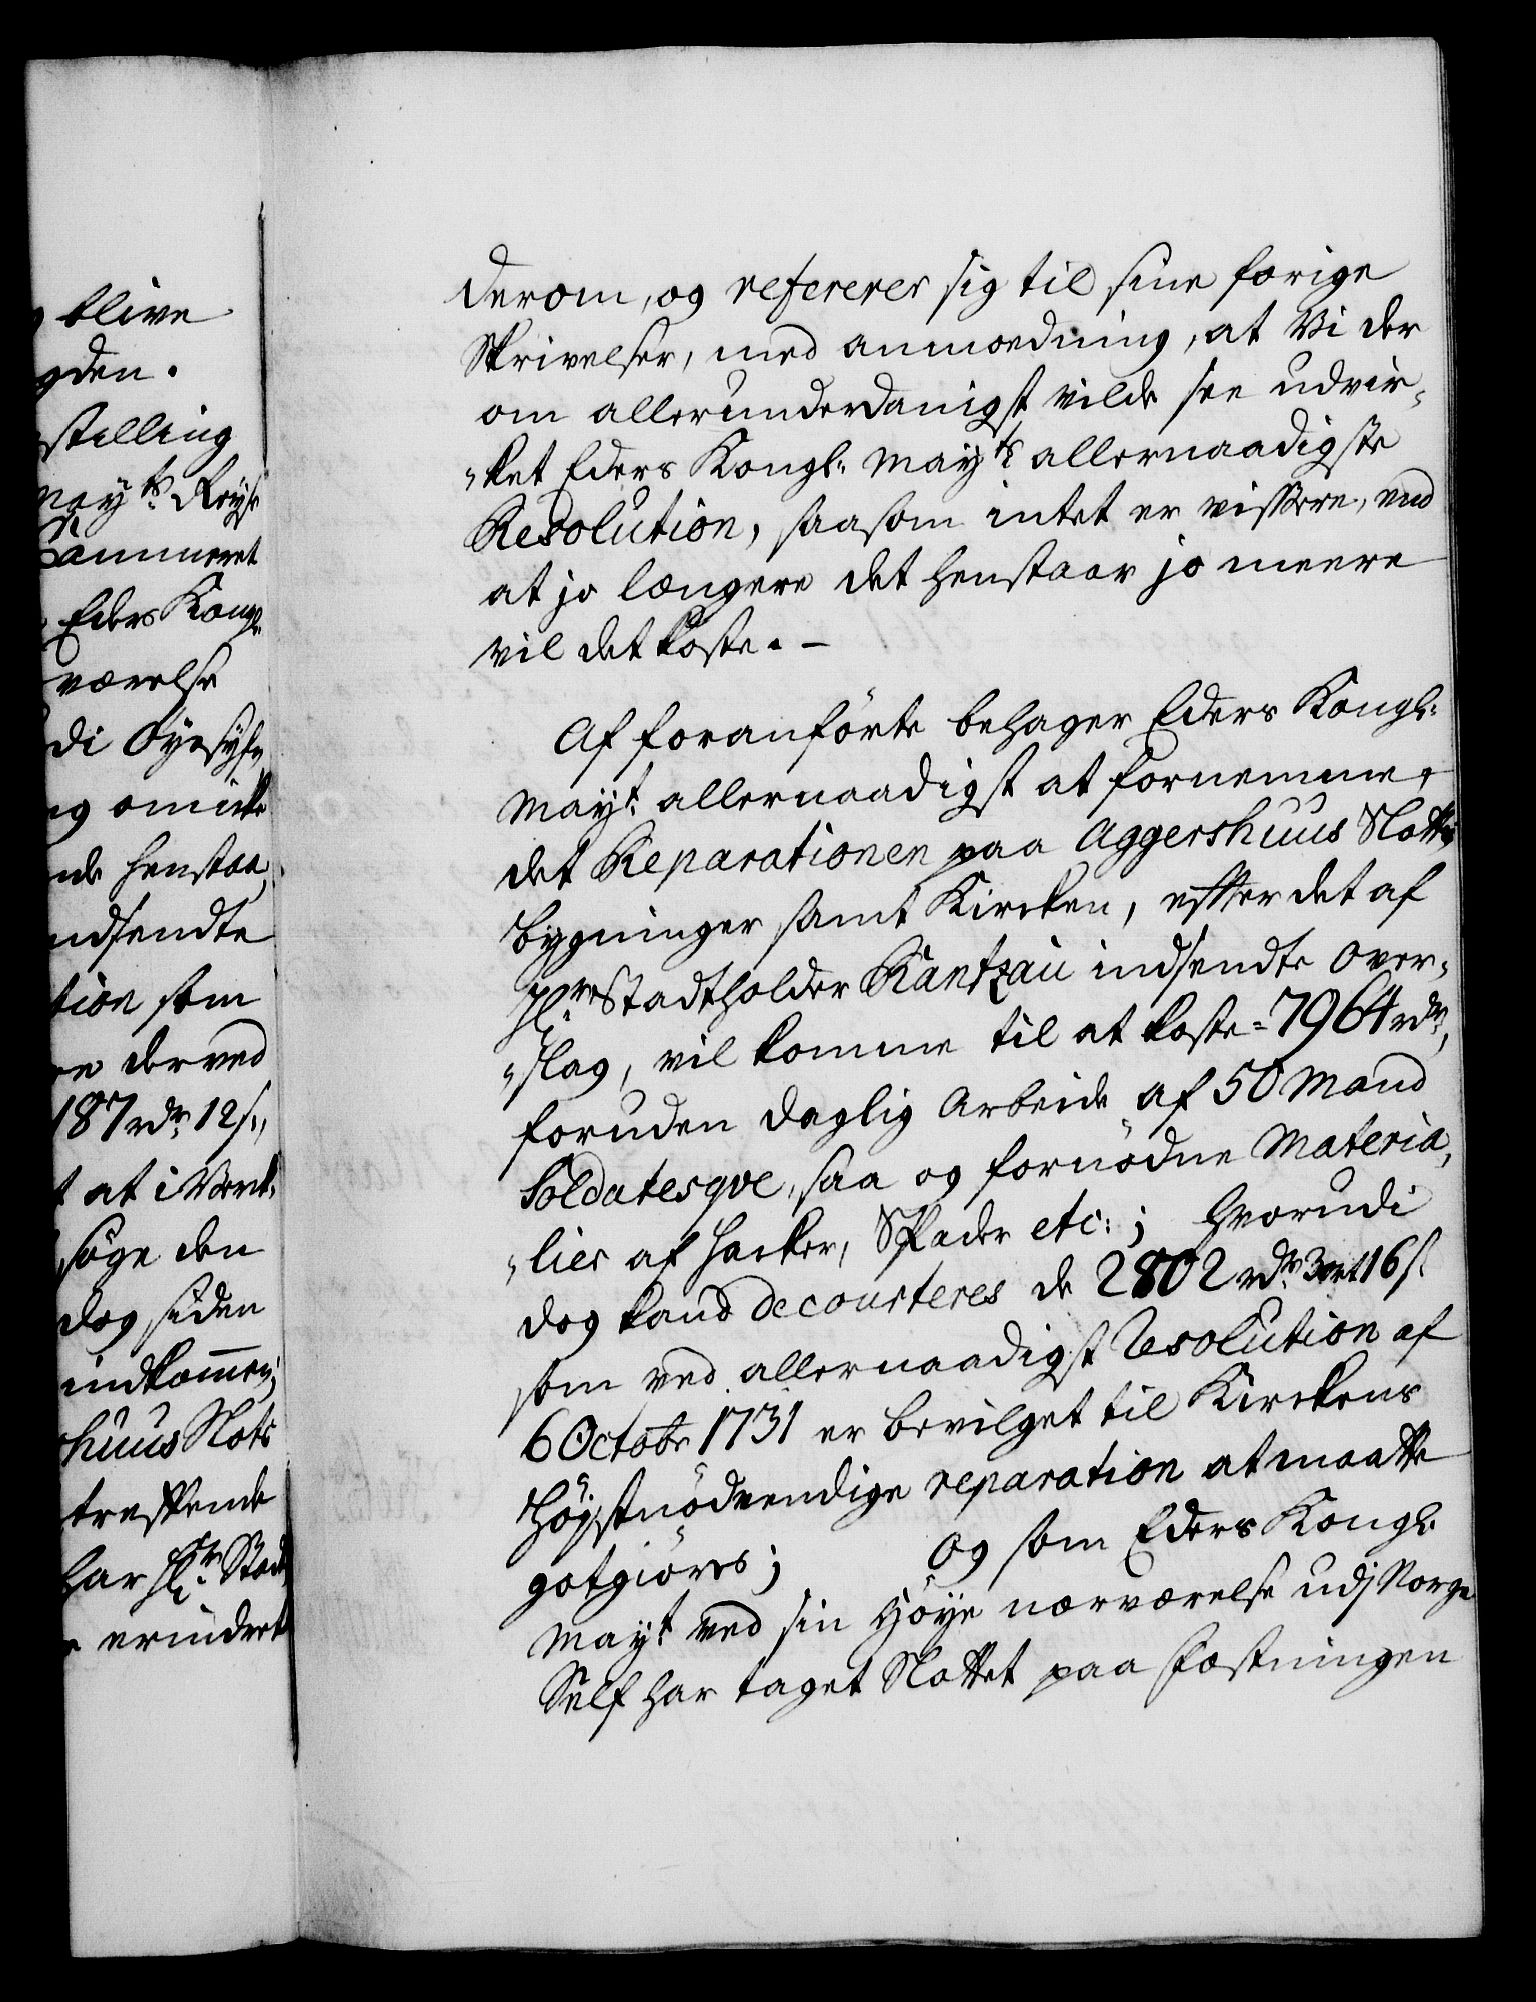 blive
gden.
stilling
Mayts Reyse
Cammeret
Eders Kongl:
værelse
di Øyesyhn
og omicke
nde henstaa,
indsendte
tion som
derved
187 rdr 12 s.,
at i Værck,
søge den
dog siden
indkommen;
huus Slots
treffende
har Hr: Stad,
erindret
derom, og refererer sig til sine forige
Skrivelser, med anmodning, at Vi der
om allerunderdanigst vilde see udvir-
"ket Eders Kongl: Mayts allernaadigste
Resolution, saasom intet er vissere, end
at jo længere det henstaar jo meere
vil det koste. -
Af foranförte behager Eders Kongl:
Mayt allernaadigst at fornemme,
det Reparationen paa Aggershuus Slotts
bygninger samt Kircken, efter det af
Hr: Stadtholder Rantzau indsendte Over-
"slag, vil komme til at koste = 7964 rdr,
foruden daglig Arbeide af 50 Mand
Soldatesqve, saa og fornødne Materia,
"lier af Hacker, Spader etc:; hvorudi
dog kand decourteres de 2802 rdr 3 ort 16 s.
som ved allernaadigst Resolution af
6 Octobr 1731 er bevilget til Kirckens
Høystnødvendige reparation at maatte
gotgiøres; Og som Eders Kongl:
Mayt ved sin Høye nærværelse udj Norge
Self har taget Slottet paa Fæstningen